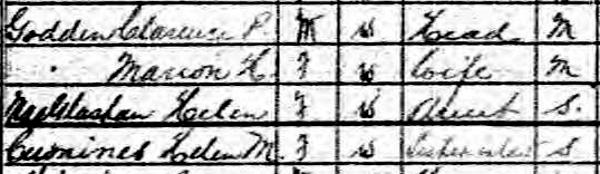 Godden Clarence P. M W Head M
" Marion H. F W Wife M
MacGlashan Helen F W Aunt S.
Cummines Helen M. F W Sister in law S